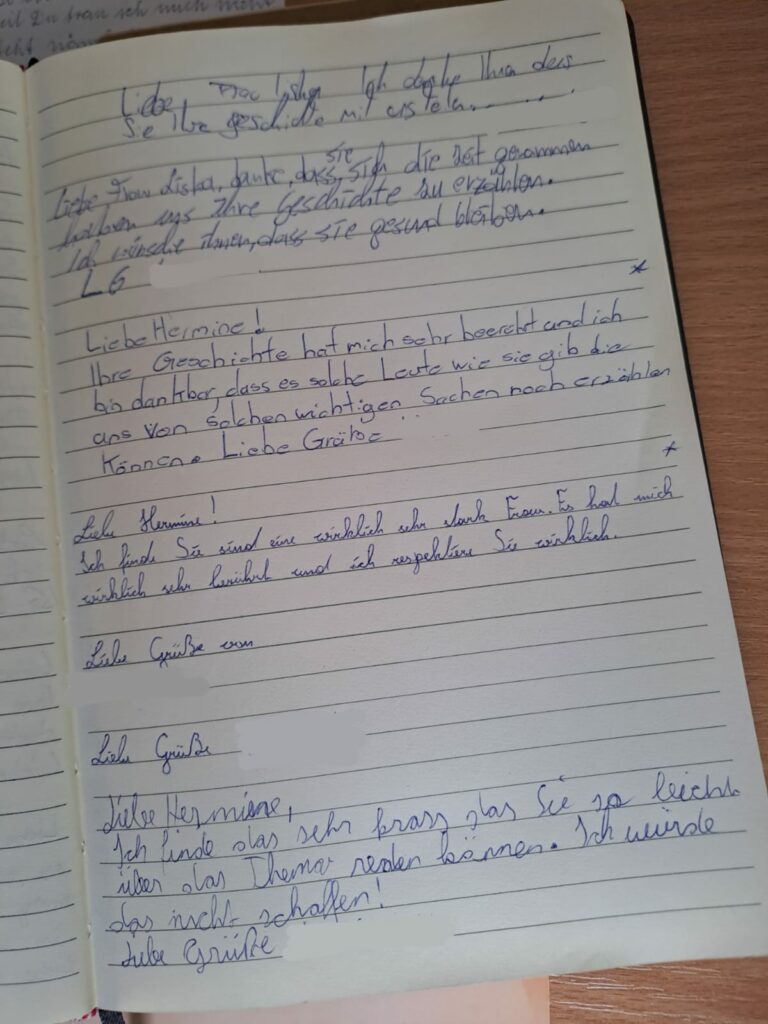 eil Du tran sch mich nicht
Liebe Frau Liska Ich danke Ihnen dass
Sie Ihre geschichte mit uns teilen........
Liebe, Frau Liska, danke, dass sie sich die Zeit genommen
haben uns Ihre Geschichte zu erzählen.
Ich wünsche ihnen, dass sie gesund bleiben.
LG
*
Liebe Hermine!
Ihre Geschichte hat mich sehr beerührt und ich
bin dankbar, dass es solche Leute wie sie gib die
uns von solchen wichtigen Sachen noch erzählen
können. Liebe Grüße
*
Liebe Hermine!
Ich finde Sie sind eine wirklich sehr stark Frau. Es hat mich
wirklich sehr berührt und ich respektiere Sie wirklich.
Liebe Grüße von
Liebe Grüße
Liebe Hermine,
Ich finde das sehr krass das Sie so leicht
über das Thema reden können. Ich würde
das nicht schaffen!
Liebe Grüße